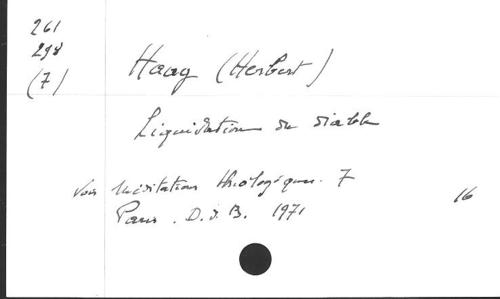 261
298
(7)
Haag (Herbert)
Liquidation du diable
Voir Méditations théologiques. 7
Paris. D.d.B. 1971
16